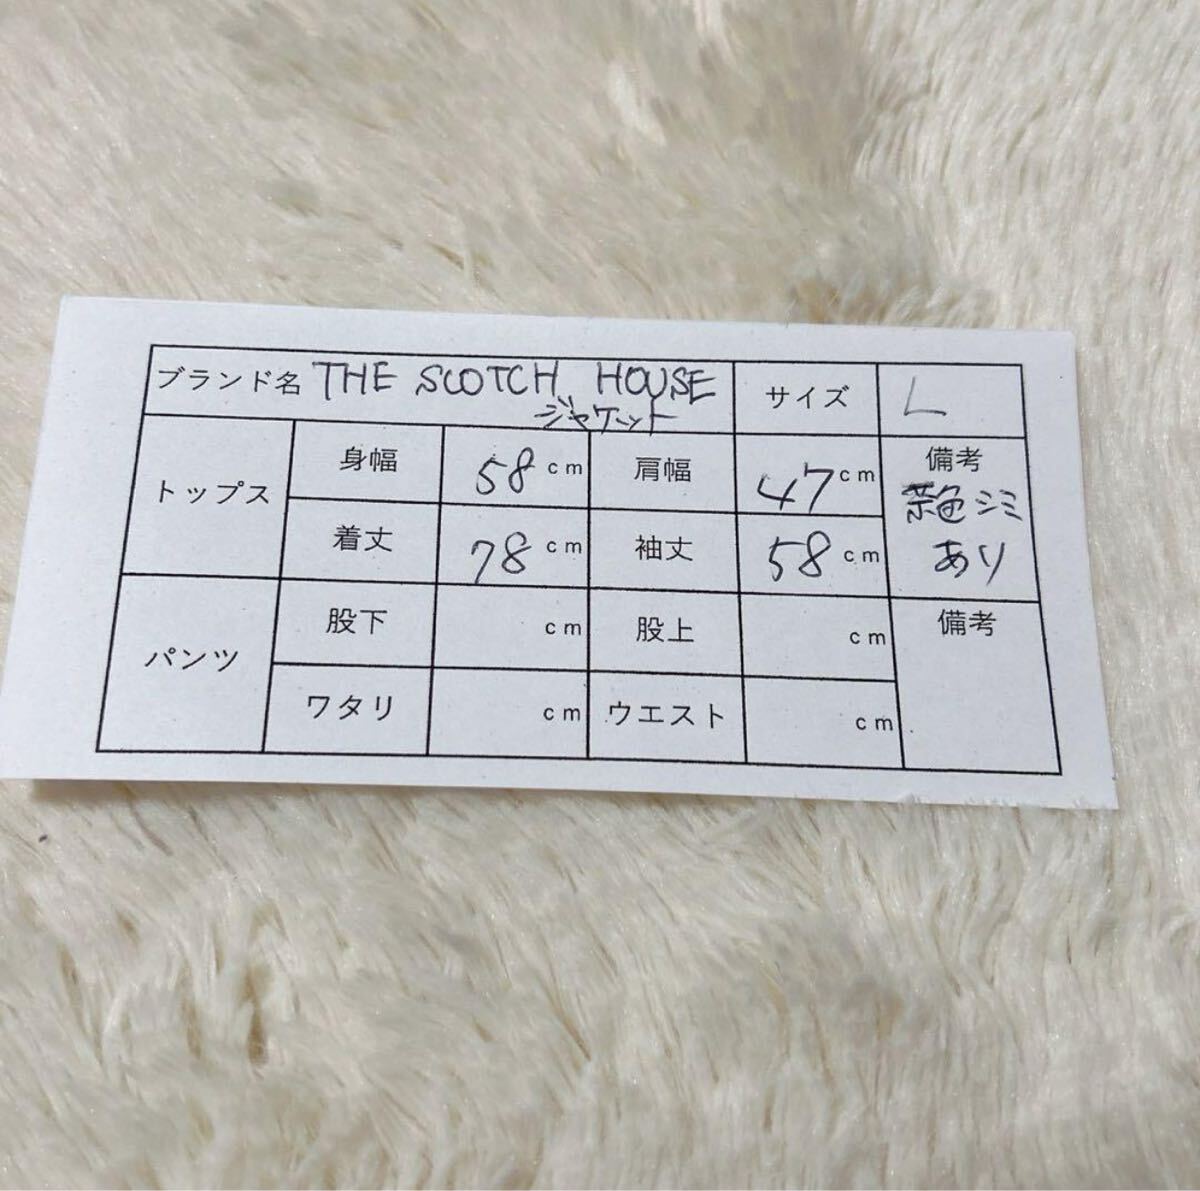 ブランド名 THE SCOTCH HOUSE サイズ L
ジャケット
トップス 身幅 58cm 肩幅 47cm 備考
茶色シミ
着丈 78cm 袖丈 58cm あり
パンツ 股下 cm 股上 cm 備考
ワタリ cm ウエスト cm